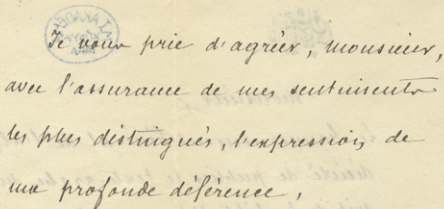 Je vous prie d'agréer, monsieur,
avec l'assurance de mes sentiments
les plus distingués, l'expression de
ma profonde déférence,